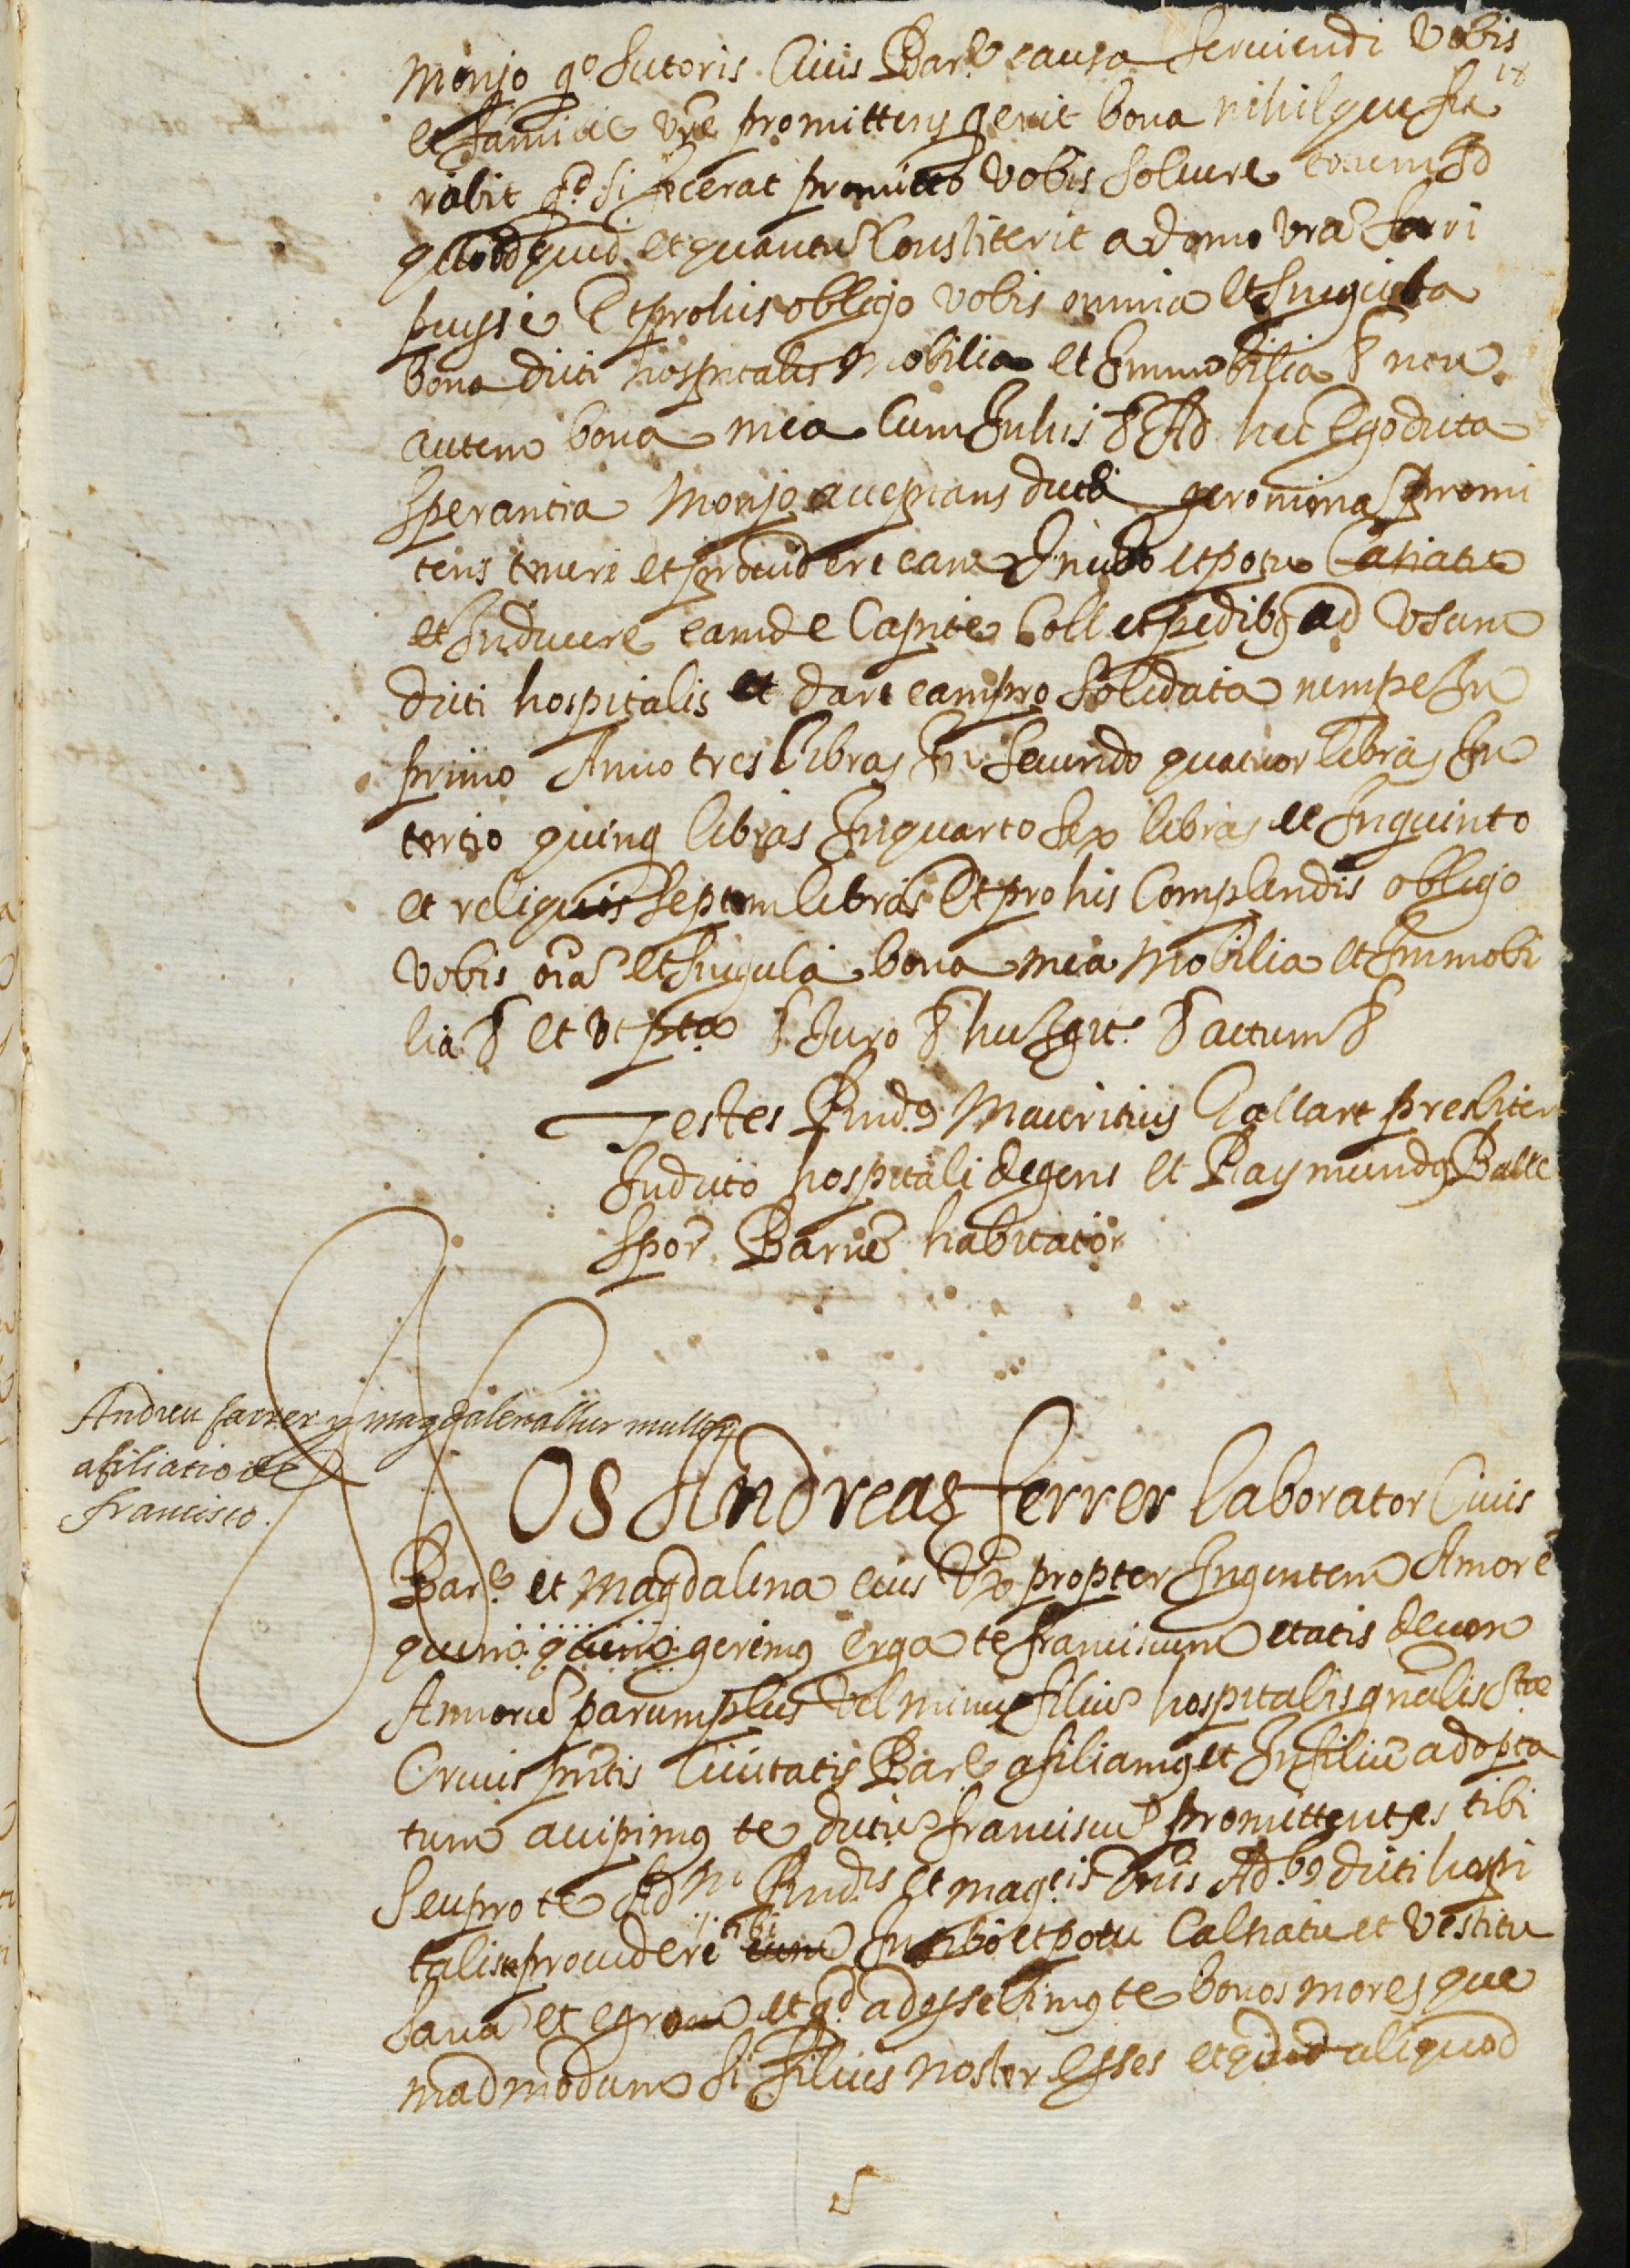 Monjo qo sutoris Civis Bar.e causa serviendi vobis
18
et familie vre promittens geret bona nihilque fu
rabit qd si fecerat promitto vobis solvere
quidquid et quantu constiterit a domo vra surri
puysse Et pro his obligo vobis omnia et singula
bona dicti hospitalis Mobilia et Immobilia & non
autem bona mea Cum Juhis & Ad hec Ego dicta
Sperancia Monjo acceptans dicta geronima promi
tens tenere et providere eam In cibo et potu Calciatu
et Induere eam de Capite Coll et pedibs ad usum
dicti hospitalis et dare eam pro solidata nempe In
primo Anno tres libras In secundo quatuor libras In
tercio quinq libras In quarto sex libras et In quinto
et reliquis septem libras Et pro his Complendis obligo
vobis oia et singula bona mea Mobilia et Immobi
lia & et ut pta & Juro & hec Igit & actum &
Testes Rnds Mauritius Collart presbiter
In dicto hospitali degens et Raymunds Balle
Spor Barne habitator
Andreu farrer y magdalena sur muller
afiliatio de
francisco.
Nos Andreas ferrer laborator Civis
Bare et Magdalena eius Ux propter Ingentem Amore
quem quem gerimus erga te franciscum etatis decem
Annoru parum plus vel minus filiu hospitalis gnalis Ste
Crucis pntis Civitatis Bare afiliamus et In filiu adopta
tum accipimus te dictu franciscu promittentes tibi
Seu pro te Ad Rndis et magcis Dnis Adbs dicti hospi
talis providere tibi eum In cibo et potu Calciatu et Vestitu
Sana et egrom et qd adossebimus te bonos mores que
madmodum si filius noster esses et quod aliquod